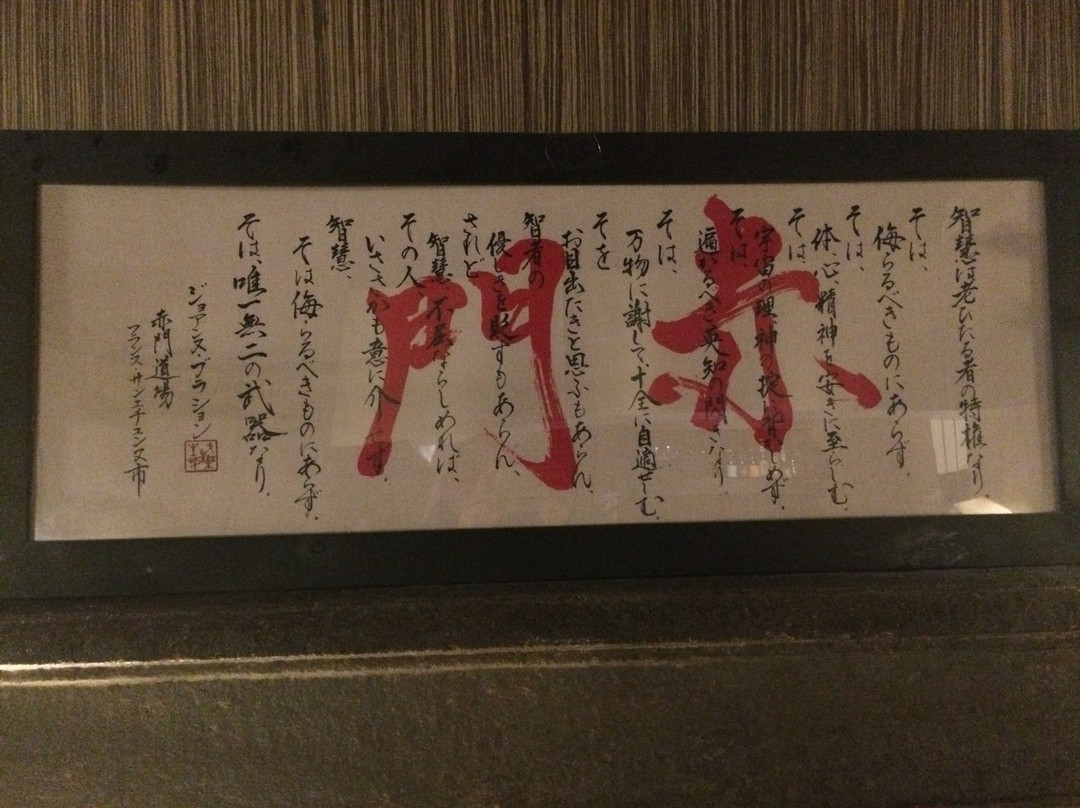 赤門
智慧は老ひたる者の特権なり.
そは、
侮らるべきものにあらず.
そは、
体、心、精神を安きに至らしむ.
そは、
宇宙の理、神の掟に背かしめず.
そは、
遍かるべき英知の閃きなり.
そは、
万物に謝して、十全に自適せしむ.
そを
お目出たきと思ふもあらん、
智者の
優しさを貶すもあらん
されど
智慧、不屈ならしめれば、
その人、
いささかも意に介せず.
智慧、
そは侮らるべきものにあらず.
そは唯一無二の武器なり.
ジョアンヌ・ブラション
赤門道場
フランス サンテチェンヌ市